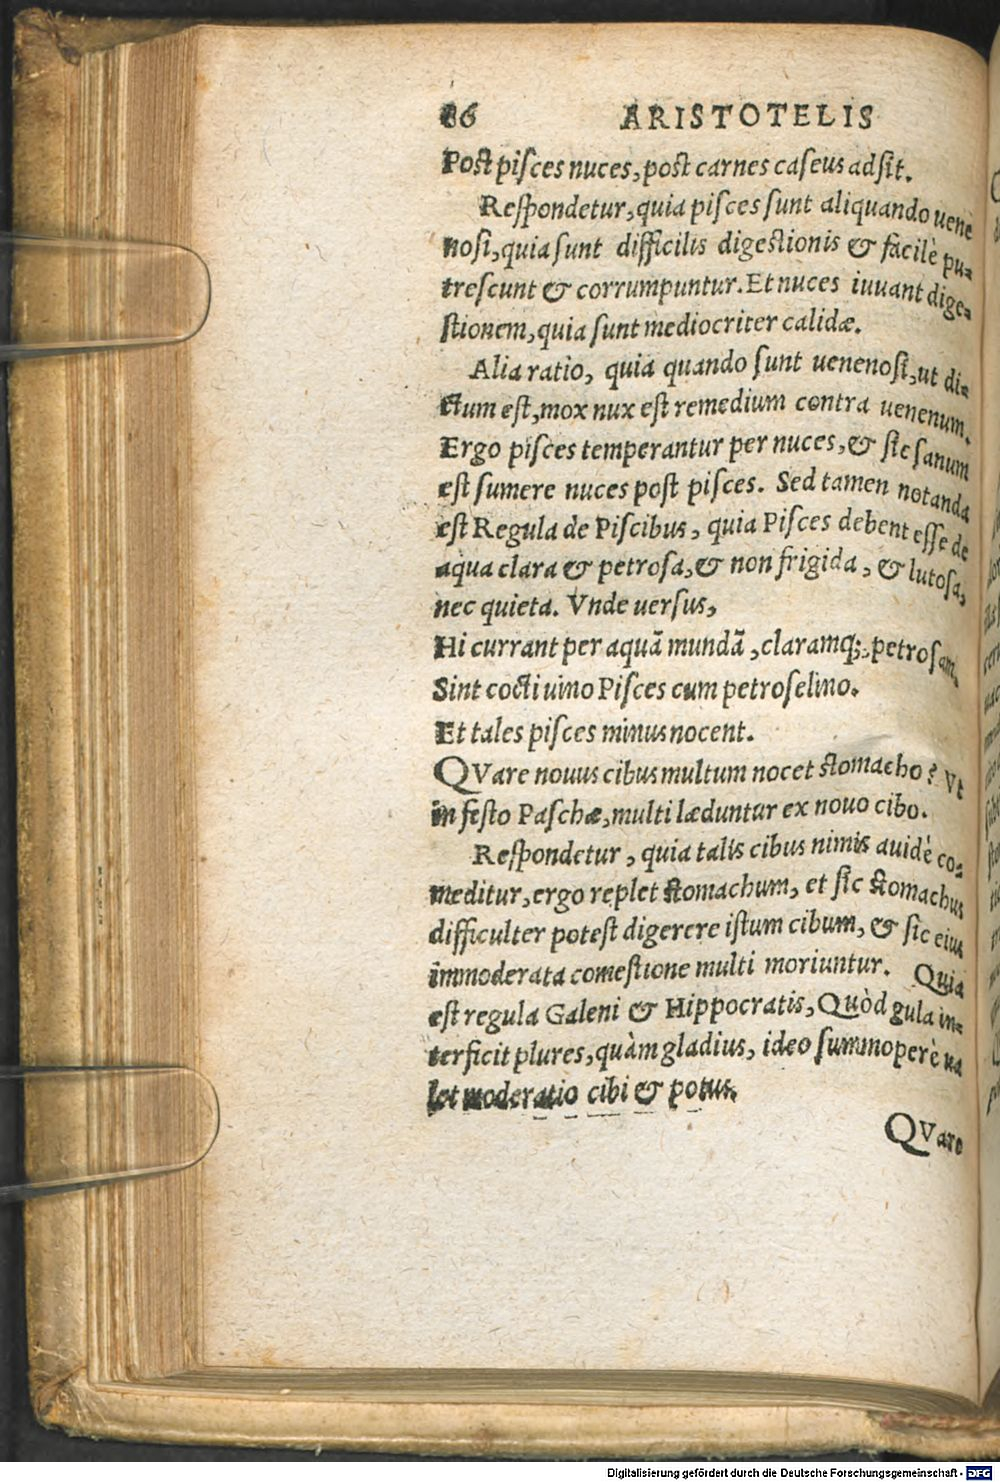 86 ARISTOTELIS
Post pisces nuces, post carnes caseus adsit.
Respondetur, quia pisces sunt aliquando uene
nosi, quia sunt difficilis digestionis & facilè pu-
trescunt & corrumpuntur. Et nuces iuuant dige-
stionem, quia sunt mediocriter calidæ.
Alia ratio, quia quando sunt uenenosi, ut di-
ctum est, mox nux est remedium contra uenenum.
Ergo pisces temperantur per nuces, & sic sanum
est sumere nuces post pisces. Sed tamen notanda
est Regula de Piscibus, quia Pisces debent esse de
aqua clara & petrosa, & non frigida, & lutosa,
nec quieta. Vnde uersus,
Hi currant per aquã mundã, claramq;, petrosam,
Sint cocti uino Pisces cum petroselino.
Et tales pisces minus nocent.
QVare nouus cibus multum nocet stomacho? Vt
in festo Paschæ, multi læduntur ex nouo cibo.
Respondetur, quia talis cibus nimis auidè co-
meditur, ergo replet stomachum, et sic stomachus
difficulter potest digerere istum cibum, & sic eius
immoderata comestione multi moriuntur. Quia
est regula Galeni & Hippocratis, Quòd gula in-
terficit plures, quàm gladius, ideo summoperè ua
let moderatio cibi & potus.
QVare
Digitalisierung gefördert durch die Deutsche Forschungsgemeinschaft - DFG